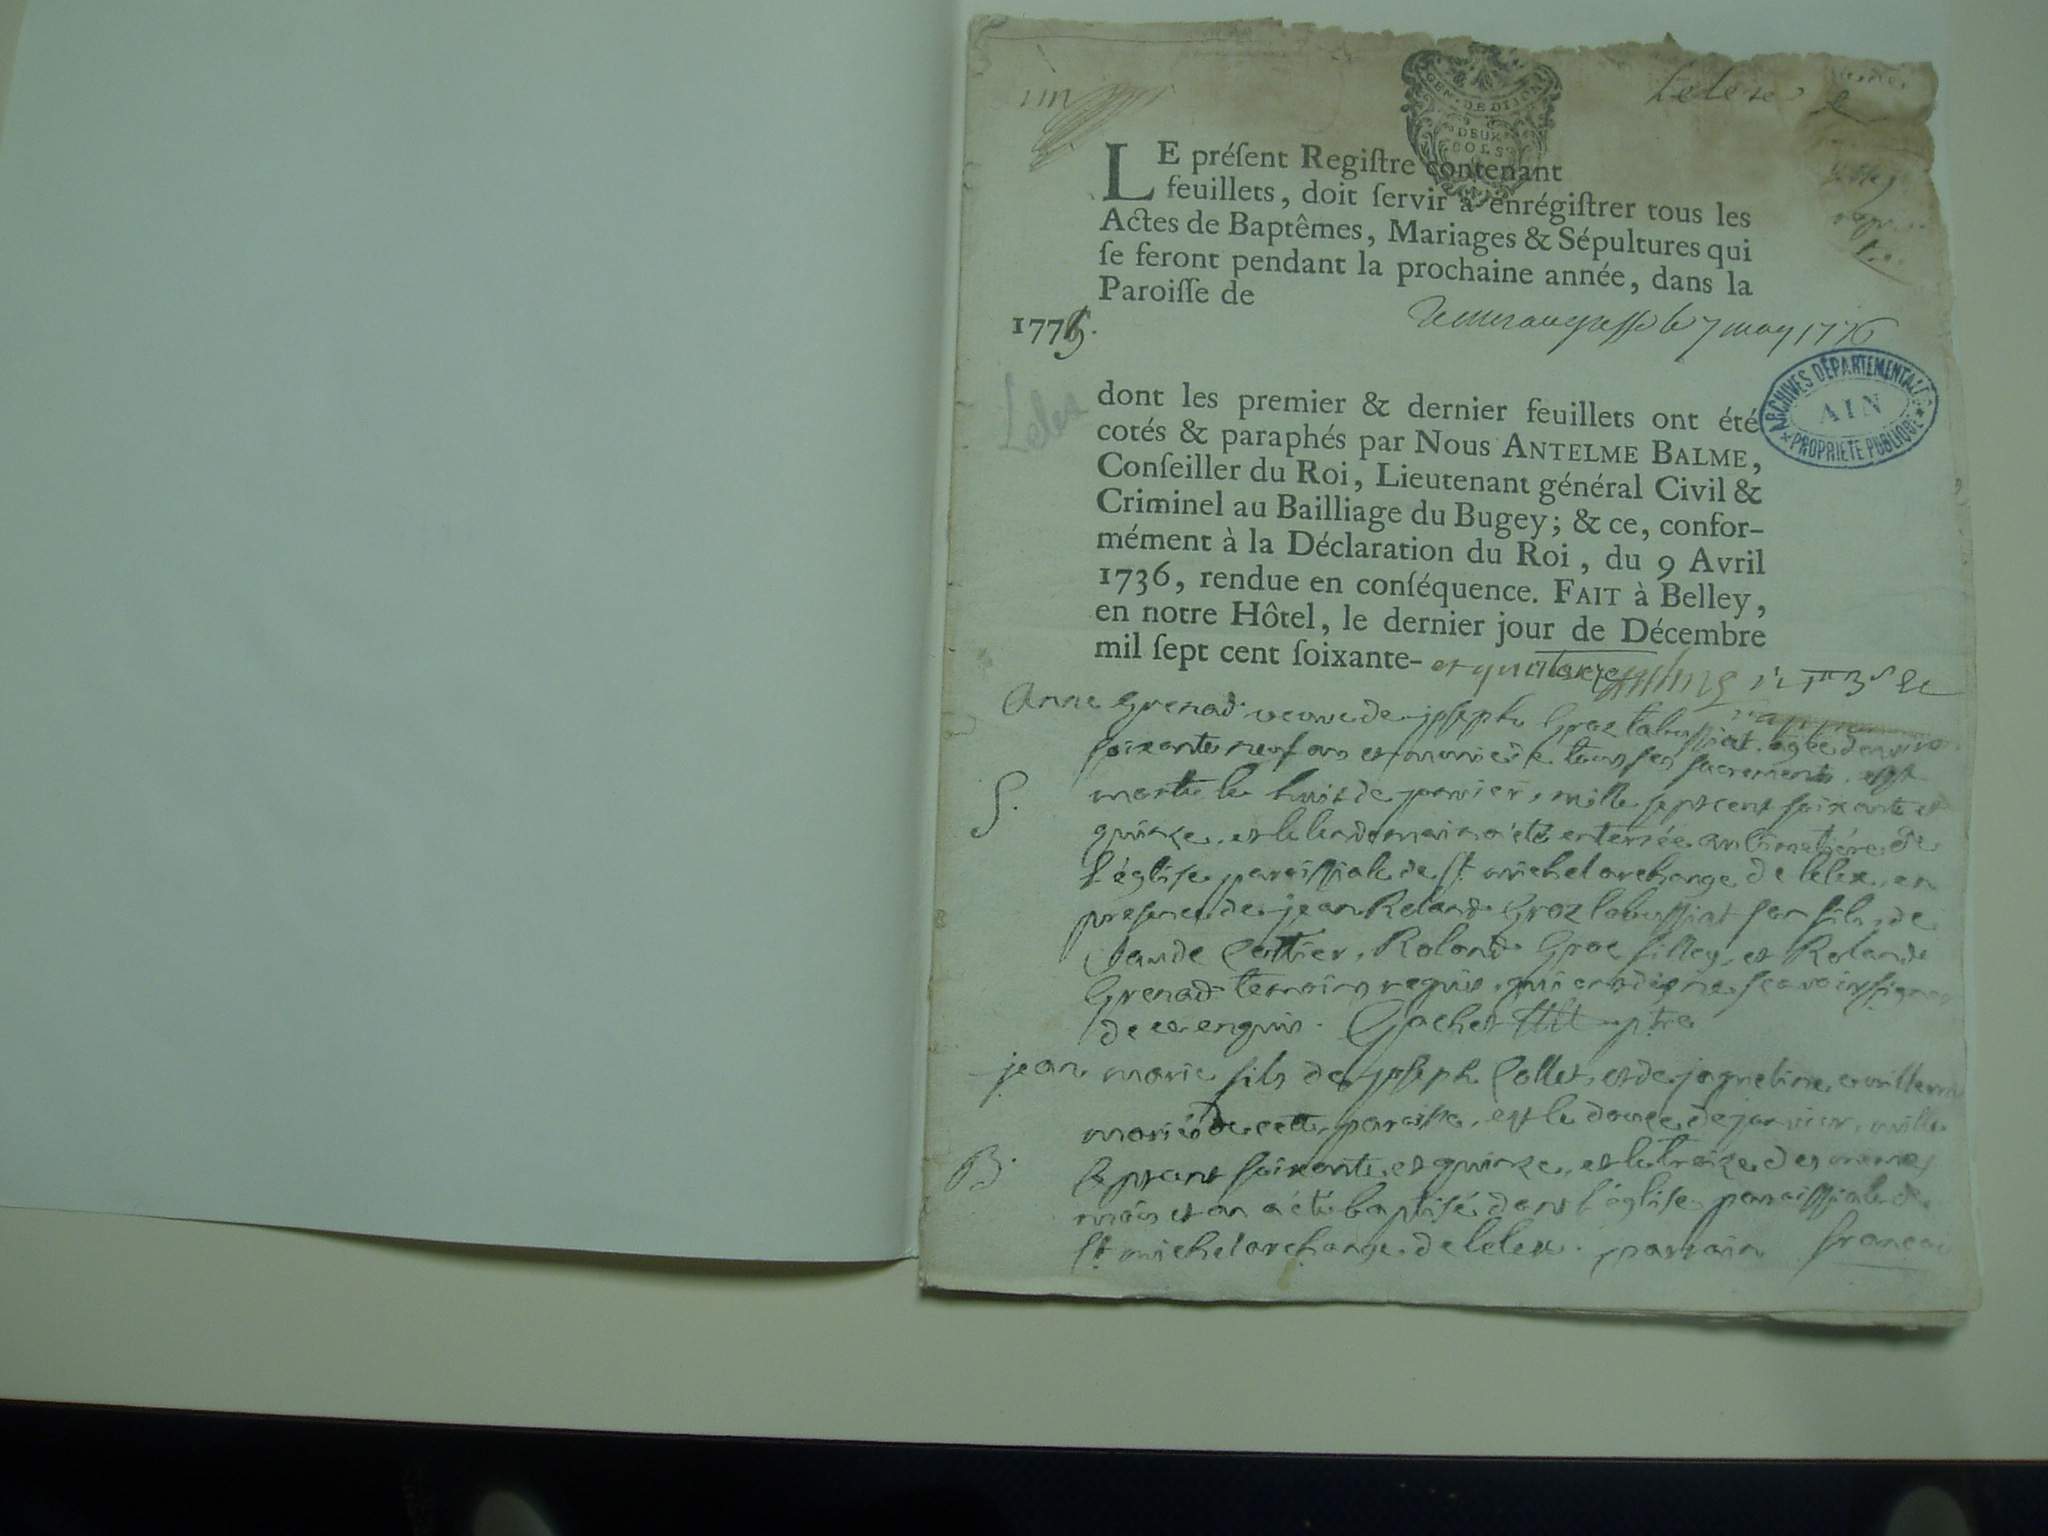 Lelex
GEN. DE DIJON
DEUX
SOLS
LE préſent Regiſtre contenant
feuillets, doit ſervir à enrégiſtrer tous les
Actes de Baptêmes, Mariages & Sépultures qui
ſe feront pendant la prochaine année, dans la
Paroiſſe de
le 7 may 1776
1775.
ARCHIVES DÉPARTEMENTALES
AIN
PROPRIETE PUBLIQUE
Lelex
dont les premier & dernier feuillets ont été
cotés & paraphés par Nous ANTELME BALME,
Conſeiller du Roi, Lieutenant général Civil &
Criminel au Bailliage du Bugey; & ce, confor-
mément à la Déclaration du Roi, du 9 Avril
1736, rendue en conſéquence. FAIT à Belley,
en notre Hôtel, le dernier jour de Décembre
mil ſept cent ſoixante- et quatorze
Anne Grenad veuve de joseph Groz labussiat agée denviron
soixante neuf ans et munie de tous ses sacrements est
S. morte le huit de janvier, mille sept cent soixante et
quinze, et le lendemain a été enterrée au cimetiére de
l'église paroissiale de st michel archange de lelex, en
presence de jean Roland Groz labussiat son fils, de
Claude Coittier, Roland Groz filley, et Roland
Grenad temoins requis, qui ont désigné sçavoir signer
de ce enquis. Gachet ptre
jean marie fils de joseph Collet, et de jaqueline
mariés de cette paroisse, est le douze de janvier, mille
B. sept cent soixante et quinze, et le treize des memes
mois et an a été baptisé dans l'église paroissiale de
st michel archange de lelex. parrain françois